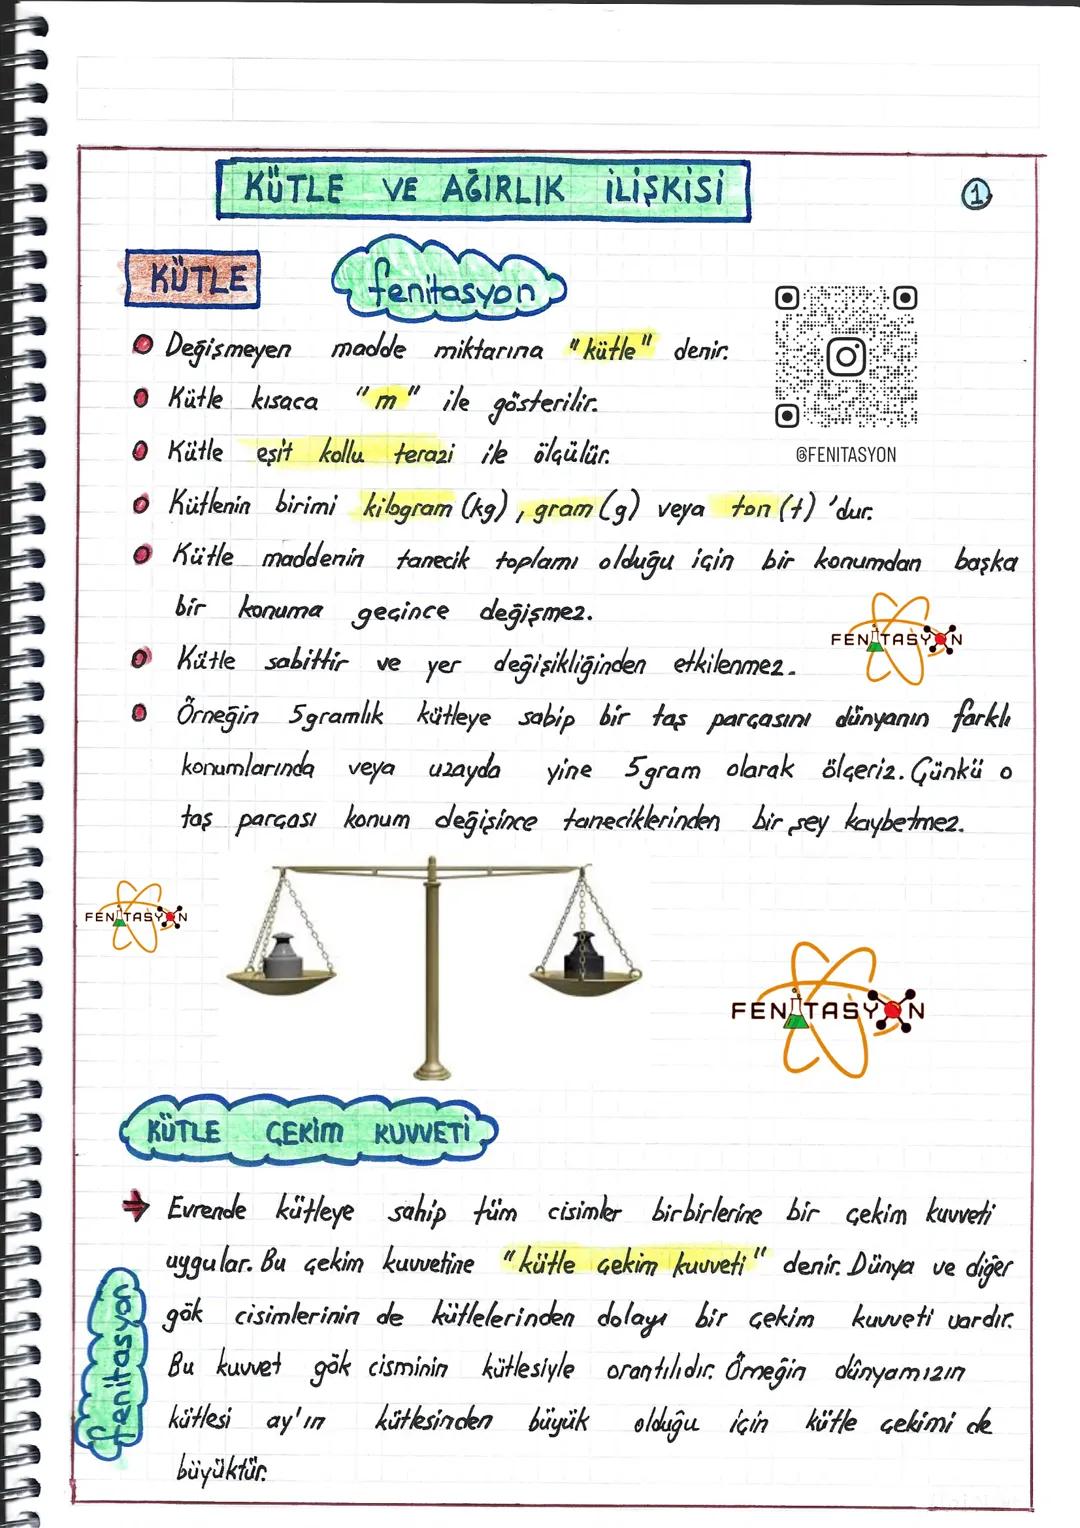 KÜTLE VE AĞIRLIK İLİŞKİSİ
1
KÜTLE
fenitasyon
Değişmeyen madde miktarına "kütle" denir.
Kütle kısaca "m" ile gösterilir.
Kütle eşit kollu terazi ile ölçülür.
@FENITASYON
Kütlenin birimi kilogram (kg), gram (g) veya ton (t) 'dur.
Kütle maddenin tanecik toplamı olduğu için bir konumdan başka
bir konuma geçince değişmez.
FENITASYON
Kütle sabittir ve yer değişikliğinden etkilenmez.
Örneğin 5gramlık kütleye sahip bir taş parçasını dünyanın farklı
konumlarında veya uzayda yine 5gram olarak ölçeriz. Çünkü o
taş parçası konum değişince taneciklerinden bir şey kaybetmez.
FENITASYON
FENITASYON
KÜTLE ÇEKİM KUVVETİ
Evrende kütleye sahip tüm cisimler birbirlerine bir çekim kuvveti
uygular. Bu çekim kuvvetine "kütle çekim kuvveti" denir. Dünya ve diğer
gök cisimlerinin de kütlelerinden dolayı bir çekim kuvveti vardır.
Bu kuvvet gök cisminin kütlesiyle orantılıdır. Örneğin dünyamızın
kütlesi ay'ın kütlesinden büyük olduğu için kütle çekimi de
büyüktür.
fenitasyon